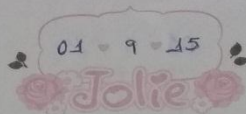 01 9 15
Jolie